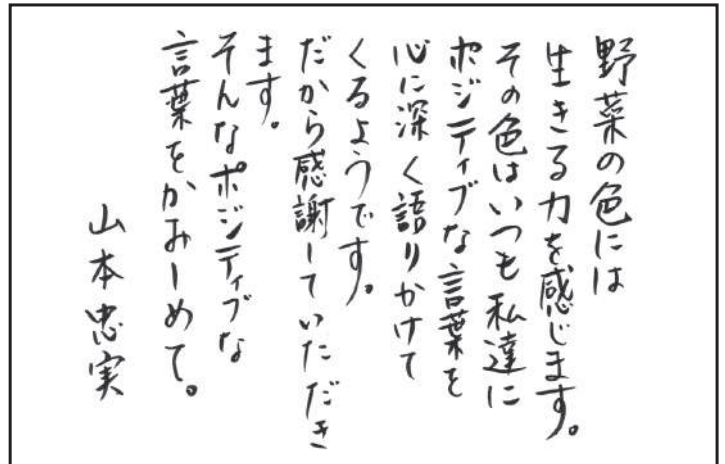 野菜の色には
生きる力を感じます。
その色はいつも私達に
ポジティブな言葉を
心に深く語りかけて
くるようです。
だから感謝していただき
ます。
そんなポジティブな
言葉をかみしめて。
山本忠実